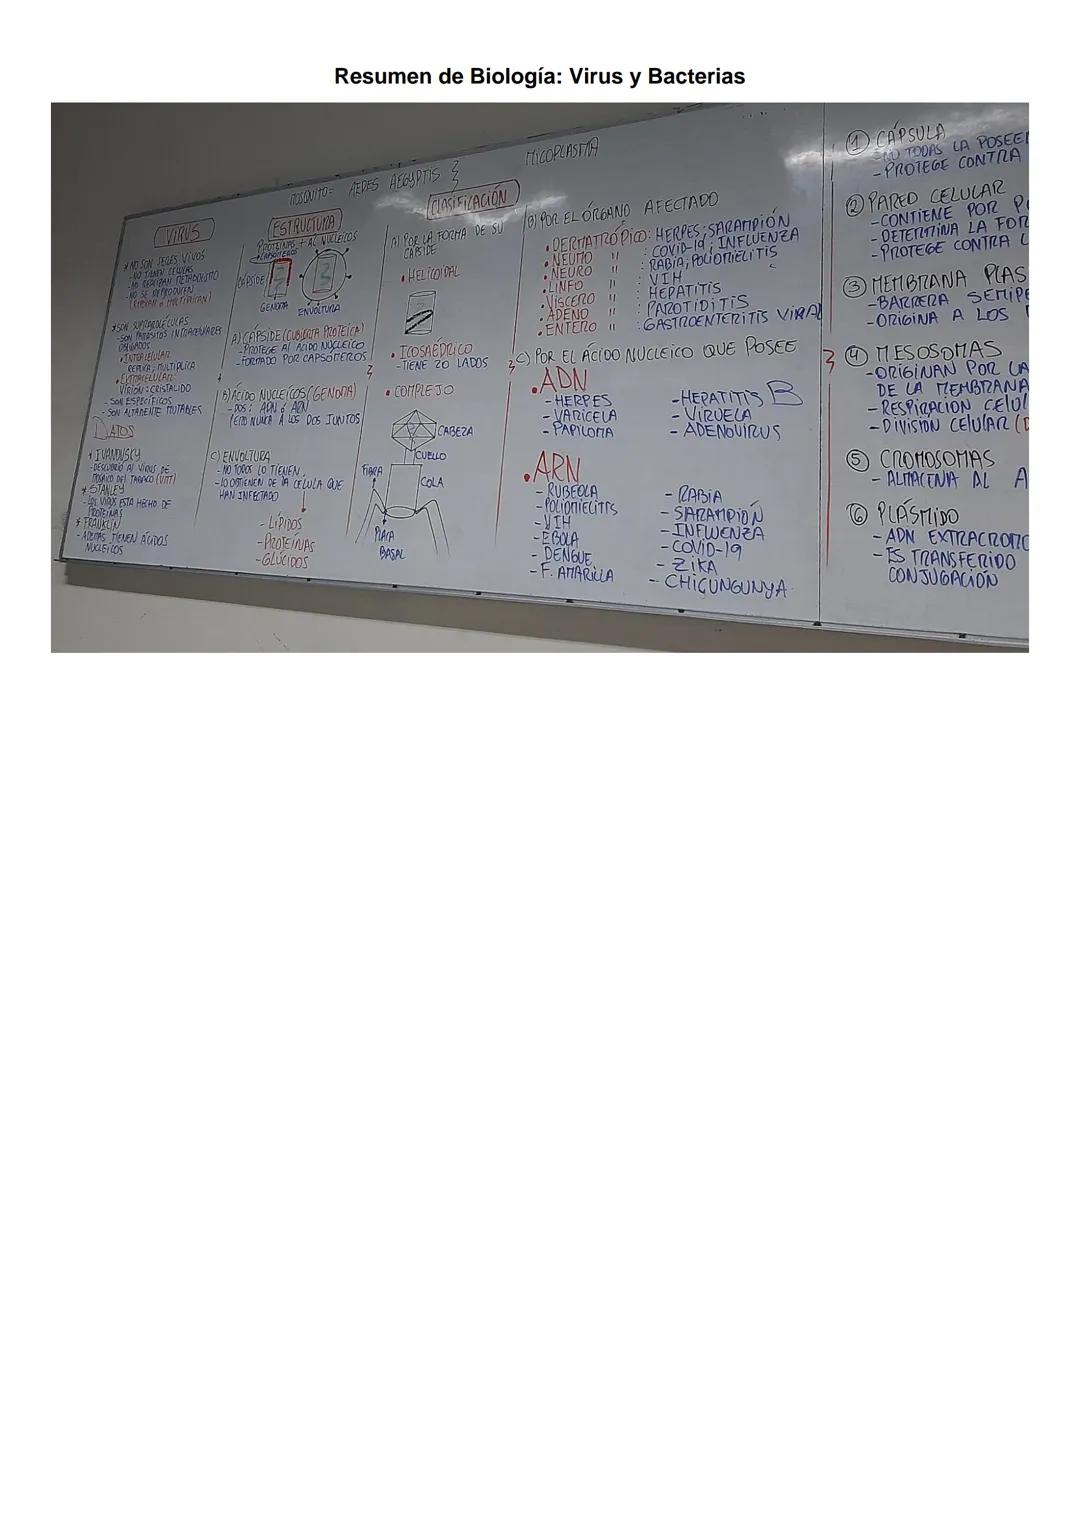 Resumen de Biología: Virus y Bacterias
MOSQUITO= AEDES AEGYPTIS
MICOPLASMA
VIRUS
* NO SON SERES VIVOS
- NO TIENEN CELULAS
- NO REALIZAN METABOLISMO
- NO SE REPRODUCEN
(REPLICAN o MULTIPLICAN)
* SON SUPRAMOLÉCULAS
- SON PARÁSITOS INTRACELULARES
OBLIGADOS
• INTRACELULAR
REPLICA, MULTIPLICA
• EXTRACELULAR:
VIRION: CRISTALIDO
- SON ESPECÍFICOS
- SON ALTAMENTE MUTABLES
DATOS
* IVANOVSKY
- DESCUBRIÓ AL VIRUS DE
MOSAICO DEL TABACO (VMT)
* STANLEY
- LOS VIRUS ESTA HECHO DE
PROTEÍNAS
* FRANKLIN
- ADEMAS TIENEN ÁCIDOS
NUCLEICOS
ESTRUCTURA
PROTEINAS + AC. NUCLEICOS
CAPSOMEROS
CÁPSIDE
GENOMA
ENVOLTURA
A) CAPSIDE (CUBIERTA PROTEICA)
- PROTEGE AL ACIDO NUCLEICO
- FORMADO POR CAPSÓMEROS
B) ÁCIDO NUCLEICOS (GENOMA)
- DOS: ADN ó ARN
PERO NUNCA A LOS DOS JUNTOS
C) ENVOLTURA
- NO TODOS LO TIENEN
- LO OBTIENEN DE LA CÉLULA QUE
HAN INFECTADO
- LÍPIDOS
- PROTEÍNAS
- GLÚCIDOS
CLASIFICACIÓN
A) POR LA FORMA DE SU
CAPSIDE
• HELICOIDAL
• ICOSAÉDRICO
- TIENE 20 LADOS
• COMPLEJO
CABEZA
CUELLO
FIBRA
COLA
PLACA
BASAL
B) POR EL ÓRGANO AFECTADO
• DERMATRÓPICO: HERPES, SARAMPIÓN
• NEUMO " : COVID-19, INFLUENZA
• NEURO " : RABIA, POLIOMIELITIS
• LINFO " : VIH
• VISCERO " : HEPATITIS
• ADENO " : PAROTIDITIS
• ENTERO " : GASTROENTERITIS VIRAL
C) POR EL ÁCIDO NUCLEICO QUE POSEE
• ADN
- HERPES
- VARICELA
- PAPILOMA
- HEPATITIS B
- VIRUELA
- ADENOVIRUS
• ARN
- RUBEOLA
- POLIOMIELITIS
- VIH
- EBOLA
- DENGUE
- F. AMARILLA
- RABIA
- SARAMPIÓN
- INFLUENZA
- COVID-19
- ZIKA
- CHIGUNGUNYA
1 CÁPSULA
- NO TODAS LA POSEEN
- PROTEGE CONTRA
2 PARED CELULAR
- CONTIENE POR
- DETERMINA LA FOR
- PROTEGE CONTRA L
3 MEMBRANA PLAS
- BARRERA SEMIPE
- ORIGINA A LOS
4 MESOSOMAS
- ORIGINAN POR
DE LA MEMBRANA
- RESPIRACION CELUL
- DIVISIÓN CELULAR
5 CROMOSOMAS
- ALMACENA AL A
6 PLÁSMIDO
- ADN EXTRACROMO
- ES TRANSFERIDO
CONJUGACIÓN